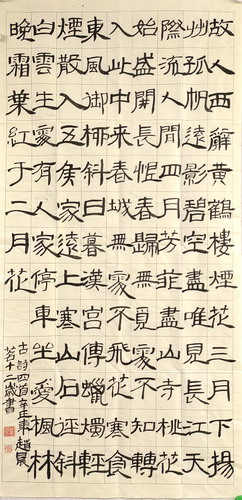 故人西辭黃鶴樓煙花三月下揚
州孤帆遠影碧空盡唯見長江天
際流人間四月芳菲盡山寺桃花
始盛開長恨春歸無覓處不知轉
入此中來春城無處不飛花寒食
東風御柳斜日暮漢宮傳蠟燭輕
煙散入五侯家遠上寒山石徑斜
白雲生處有人家停車坐愛楓林
晚霜葉紅于二月花
古詩四首辛丑年趙昊
茗十二歲書